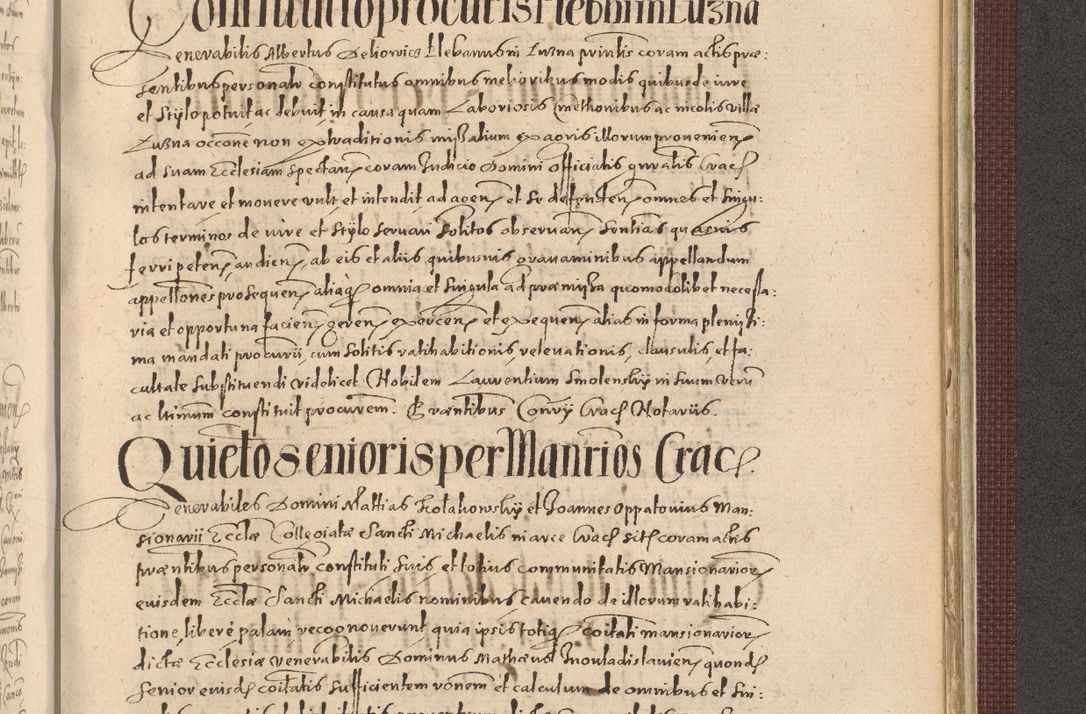 Constitutio procuris Plebni in Luzna
Venerabilis Albertus Deliowicz Plebanus in Luzna printis coram actis præ:
sentibus personalr constitutus omnibus melioribus modis quibus de iure
et Stylo potuit ac debuit in causa quam Laboriosis Cmethonibus ac incolis villæ
Luzna occone non extraditionis missalium ex agris illorum provenien
ad suam Ecclesiam spectan coram Iudicio Domini officialis gnralis Crac
intentare et movere vult et intendit ad agen et se defenden omnes et singu:
los terminos de iure et stylo servari solitos observan sentias quasvis
ferri peten audien, ab eis et aliis quibusvis gravaminibus appellandum
appellones prosequen aliaq omnia et singula ad præmissa quomodolibet necessa:
ria et opportuna facien, geren exercen et exequen alias in forma plenissi:
ma mandati procurii, cum solitis ratihabitionis, relevationis, clausulis, et fa:
cultate substituendi videlicet Nobilem Laurentium Smolensky in suum verum
ac ltimum constituit procurem. Præntibus Consry Crac Notariis.
Quieto senioris per Manrios Crac
Venerabiles Domini Mattias Kołakowsky et Joannes Oppatovius Man:
sionarii Ecclæ Collegiatæ Sancti Michaelis in arce Crac sit coram actis
præntibus personalr constituti suis et totius communitatis Mansionarior
eiusdem Ecclæ Sancti Michaelis nominibus cavendo de illorum ratihabi:
tione, libere palam recognoverunt quia ipsis totiq coitati mansionarior
dictæ Ecclesiæ venerabilis Dominus Mathæus Inouladislavien quond
senior eiusd coitatis sufficientem ronem et calculum de omnibus et sin: